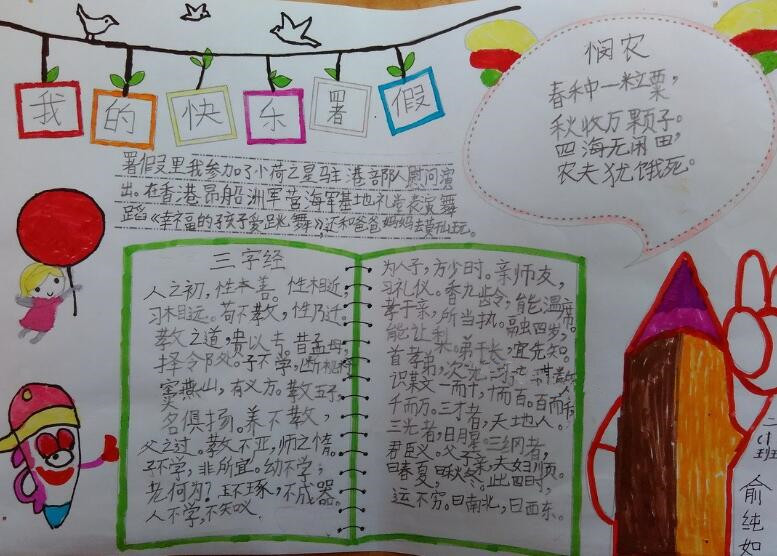 我的快乐署假
悯农
春种一粒粟，
秋收万颗子。
四海无闲田，
农夫犹饿死。
署假里我参加了小荷之星驻港部队慰问演
出。在香港昂船洲军营海军基地礼堂表演舞
蹈《幸福的孩子爱跳舞》，还和爸爸妈妈去黄山玩。
三字经
人之初，性本善。性相近，
习相远。苟不教，性乃迁。
教之道，贵以专。昔孟母，
择邻处。子不学，断机杼
窦燕山，有义方。教五子，
名俱扬。养不教，
父之过。教不严，师之惰。
子不学，非所宜。幼不学，
老何为？玉不琢，不成器。
人不学，不知义
为人子，方少时。亲师友，
习礼仪。香九龄，能温席
孝于亲，所当执。融四岁，
能让梨。弟于长，宜先知。
首孝弟，次见
识某文 一而十，十而百。百而千
千而万。三才者，天地人。
三光者，日月星。三纲者，
君臣义。父子亲，夫妇顺。
曰春夏，曰秋冬。此四时，
运不穷。曰南北，曰西东。
二
小
班
俞
纯
如